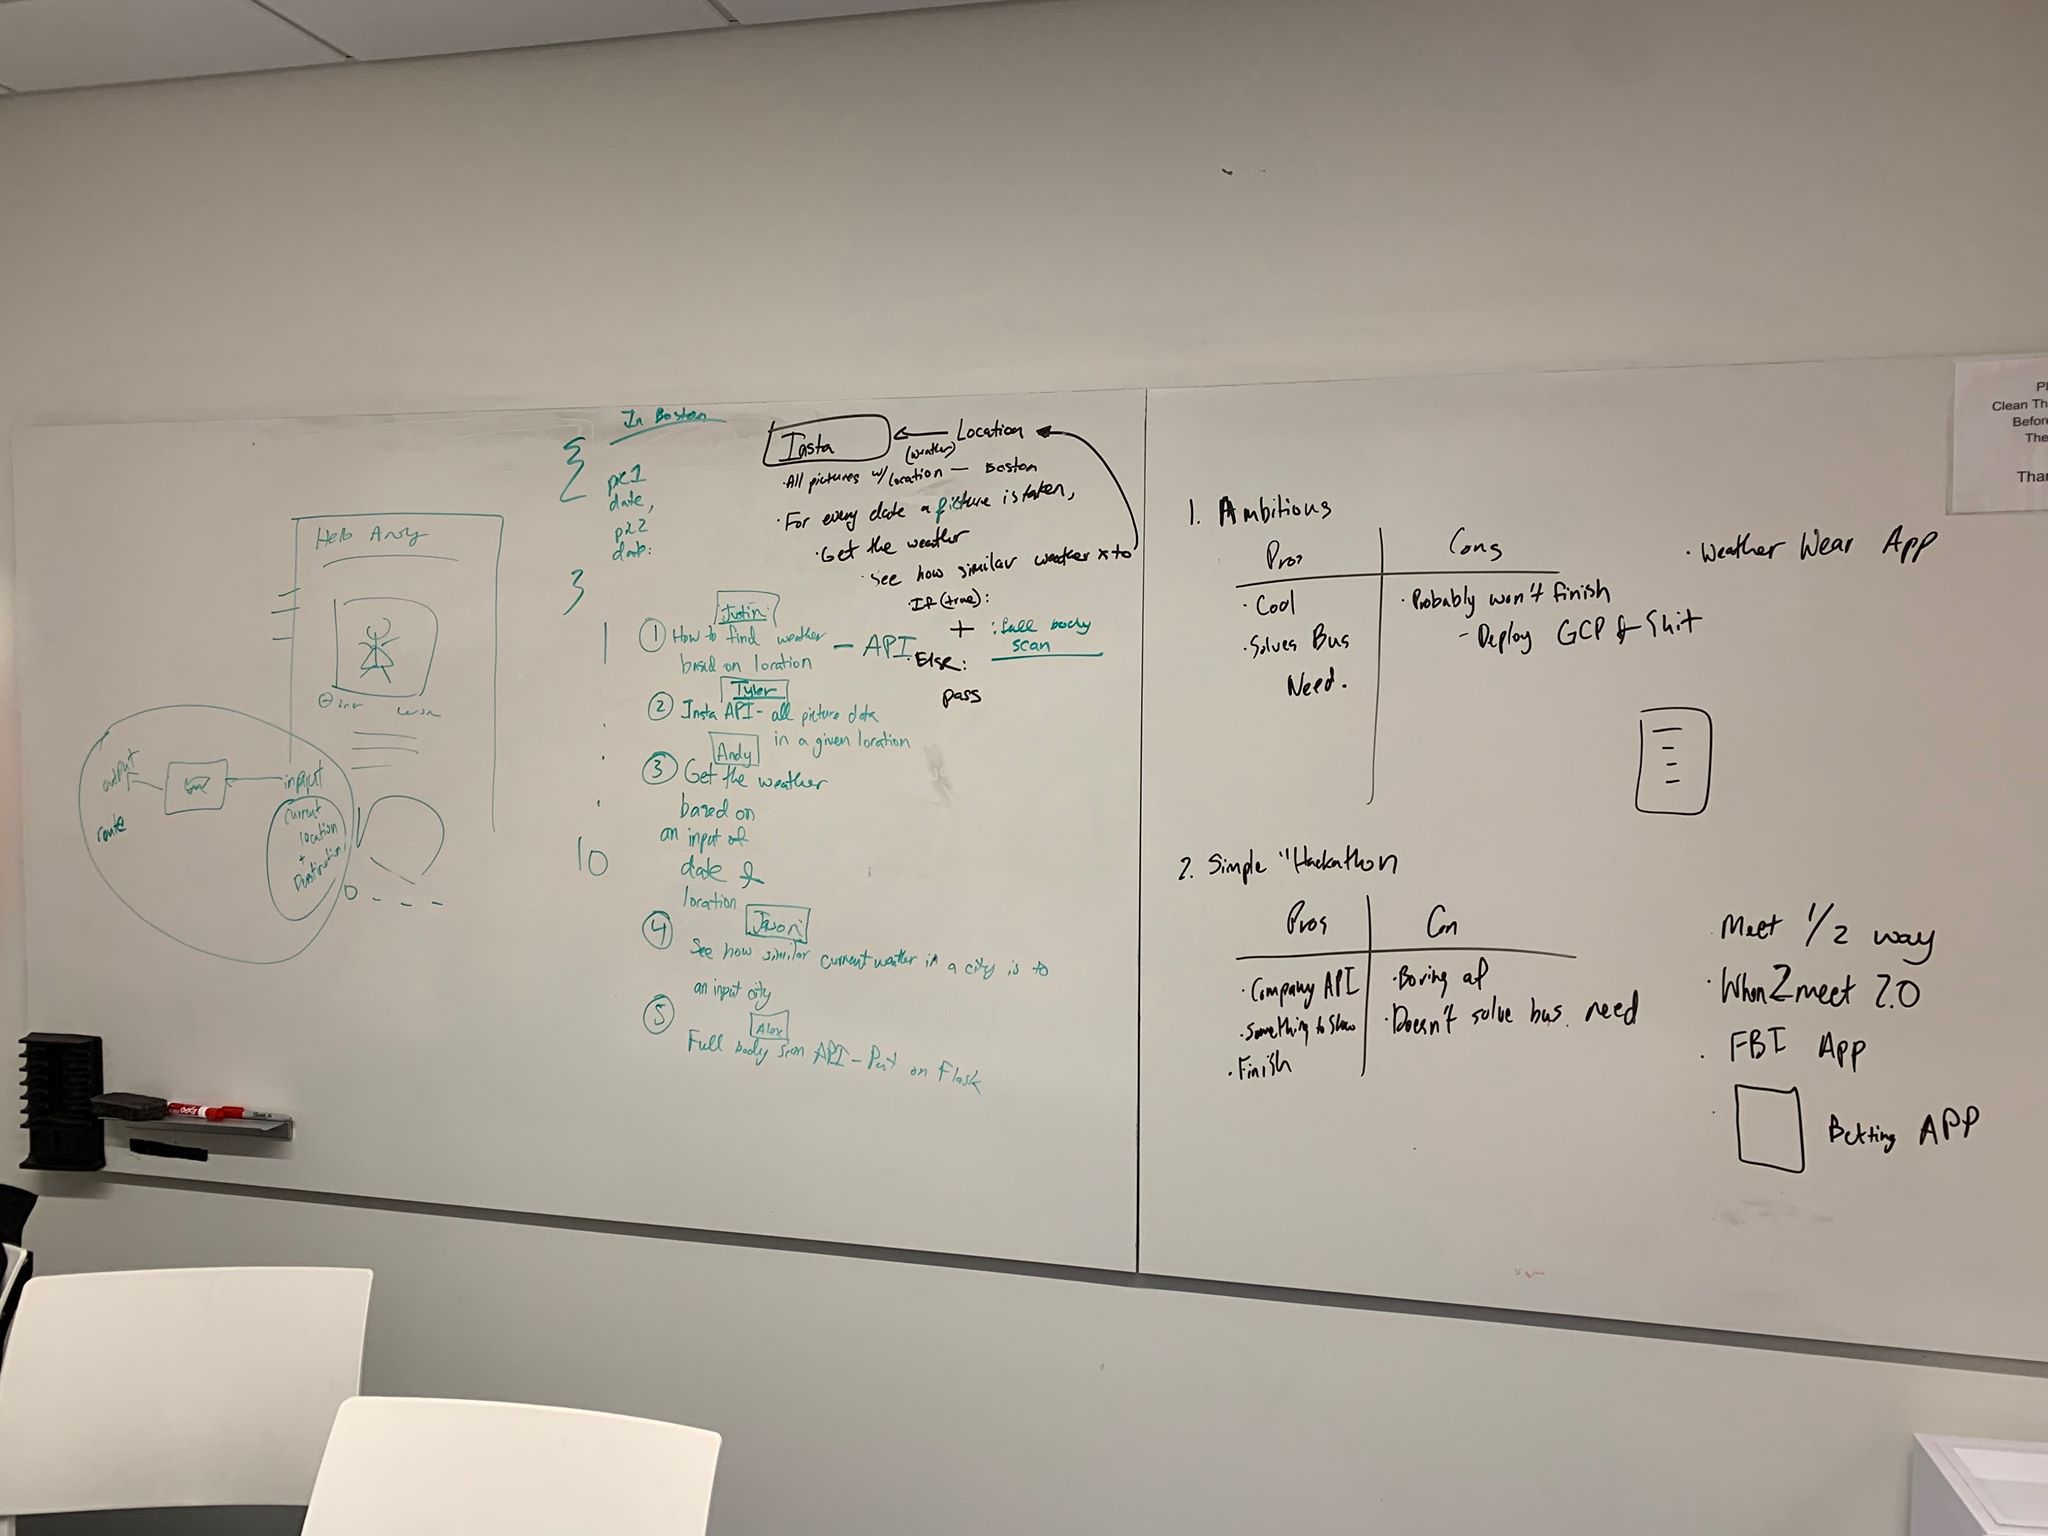 Hello Andy
output
input
route
current
location
+
Destination
In Boston
{
pic1
date,
pic2
date:
}
1
10
Insta
Location
(weather)
·All pictures w/location — Boston
·For every date a picture is taken,
·Get the weather
·See how similar weather is to
·If (true):
+ : full body
scan
·Else:
pass
Justin
① How to find weather — API
based on location
Tyler
② Insta API - all picture data
in a given location
Andy
③ Get the weather
based on
an input of
date &
location
Jason
④ See how similar current weather in a city is to
an input city
⑤ Alex
Full body scan API - Put on Flask
1. Ambitious
Pros
Cons
·Cool
·Solves Bus
Need.
·Probably won't finish
- Deploy GCP & Shit
·Weather Wear App
2. Simple "Hackathon
Pros
Con
·Company API
·Something to Show
·Finish
·Boring af
·Doesn't solve bus. need
·Meet 1/2 way
·When2meet 2.0
·FBI App
·Betting APP
Clean Th
Before
The
Than
EXPO